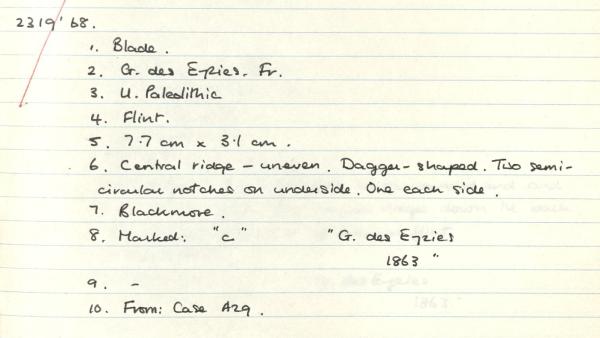 2319'68.
1. Blade.
2. G. des Eyzies. Fr.
3. U. Paleolithic
4. Flint.
5. 7.7 cm x 3.1 cm.
6. Central ridge - uneven. Dagger-shaped. Two semi-
circular notches on underside. One each side.
7. Blackmore.
8. Marked: "c" "G. des Eyzies
1863"
9. -
10. From: Case A29.